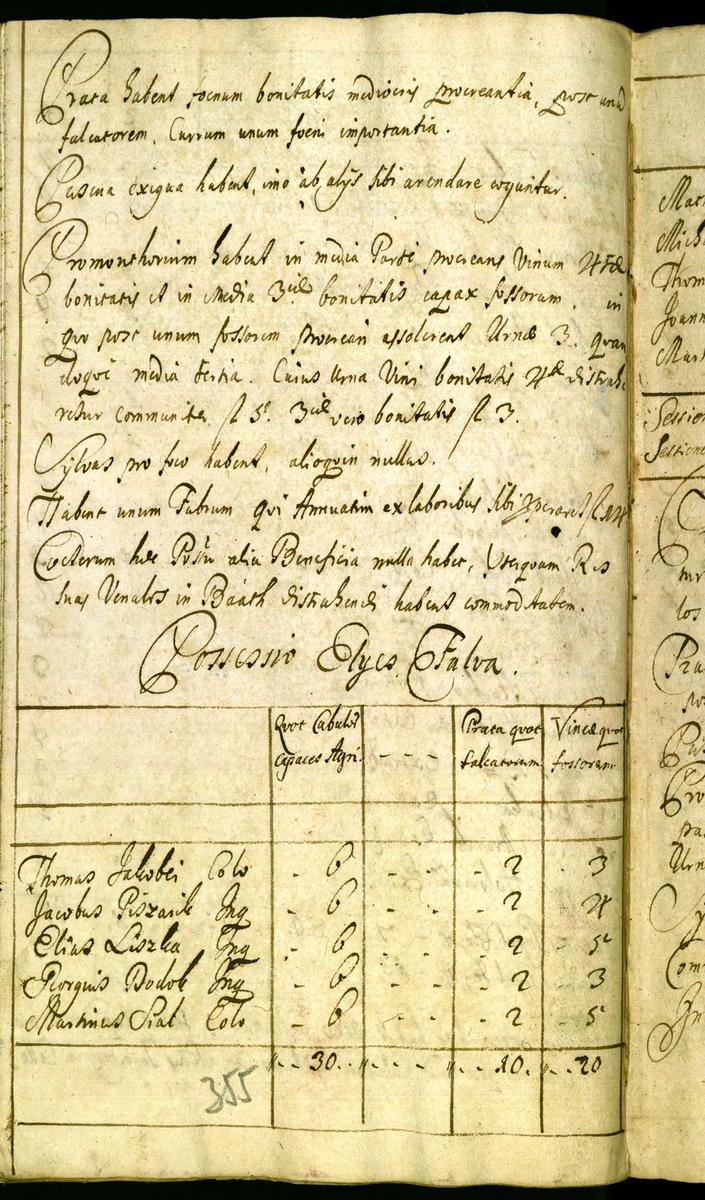 Prata habent foenum bonitatis mediocris procreantia, post unū
falcatorem, Currum unum foeni importantia.
Pascua exigua habent, imo ab alÿs sibi arendare coguntur.
Promonthorium habent in media Parte procreans Vinum
bonitatis et in Media 3tiae bonitatis capax fossorum. in
quo post unum fossorem procreari assolerent Urnae 3. quan
doque media tertia. Cuius Urna Vini bonitatis distrahe
retur communiter fl 5. 3tiae vero bonitatis fl 3.
Sylvas pro foco habent, alioquin nullas.
Habent unum Fabrum qvi Annuatim ex laboribus sibi
Coeterum alia Beneficia nulla habet, Utcunque Res
suas Venales in Báath distrahendi habent commoditatem.
Possessio Elyes Falva.
Quot Cabulor Prata quot Vineae quot
capaces Agri. - - - falcatorum fossorum
Thomas Jakobei Colo - 6 - - - 2 - 3
Jacobus Piszarik Inq - 6 - - - 2 4
Elias Liszka Inq - 6 - - - 2 - 5
Georgius Bodok Inq - 6 - - - 2 3
Martinus Sial Colo - 6 - - - 2 - 5
" - - 30 - - " - - - " - - 10 - " - - 20
355
Mart
Mich
Thom
Joann
Mart
Session
Sessione
los
Pra
Urn
Com